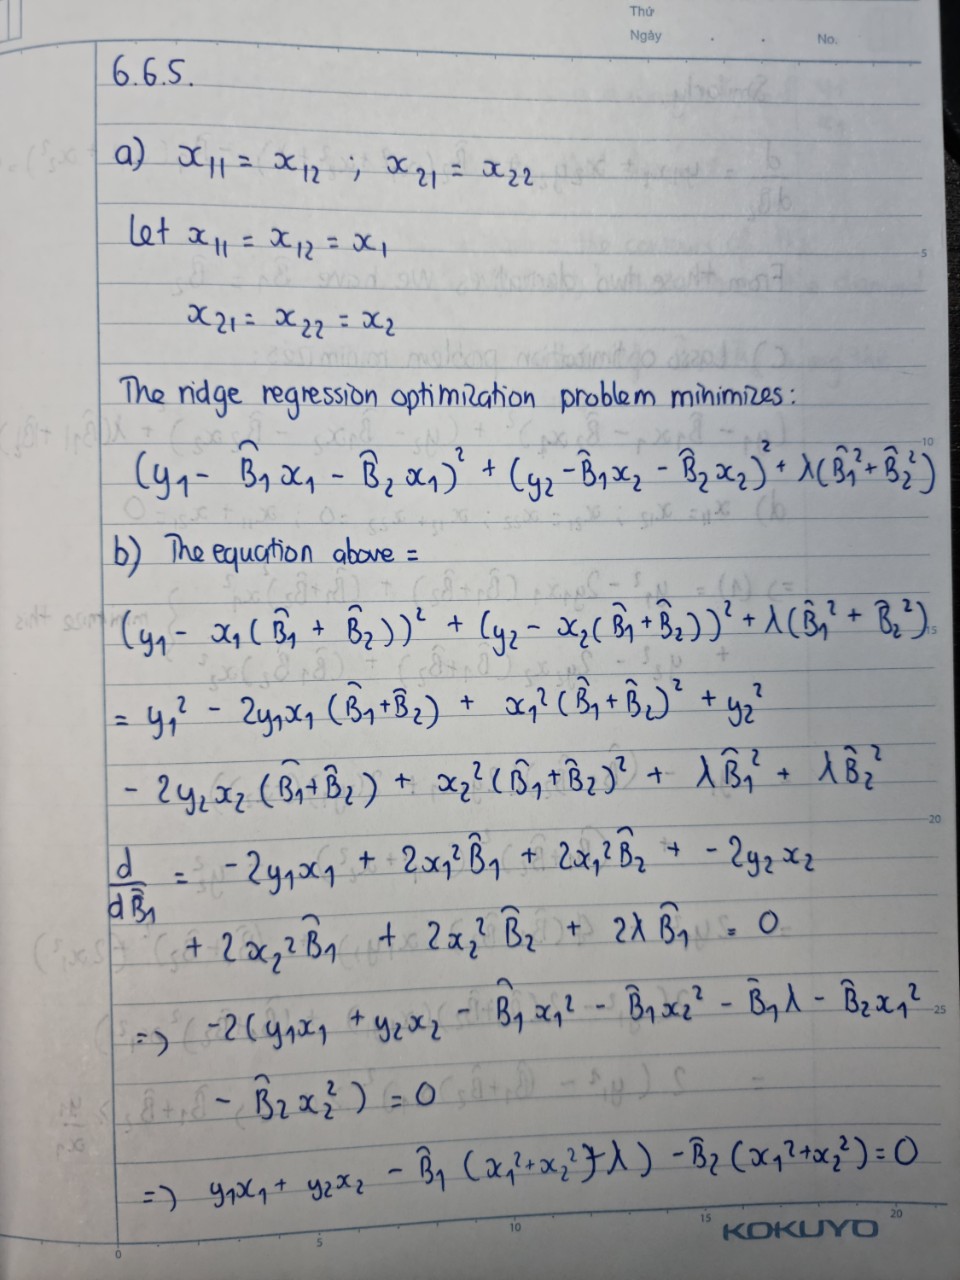 Thứ
Ngày . . No.
6.6.5.
a) x₁₁ = x₁₂ ; x₂₁ = x₂₂
Let x₁₁ = x₁₂ = x₁
5
x₂₁ = x₂₂ = x₂
The ridge regression optimization problem minimizes:
10
(y₁ - B̂₁x₁ - B̂₂x₁)² + (y₂ - B̂₁x₂ - B̂₂x₂)² + λ(B̂₁² + B̂₂²)
b) The equation above =
(y₁ - x₁(B̂₁ + B̂₂))² + (y₂ - x₂(B̂₁ + B̂₂))² + λ(B̂₁² + B̂₂²)
15
= y₁² - 2y₁x₁(B̂₁ + B̂₂) + x₁²(B̂₁ + B̂₂)² + y₂²
- 2y₂x₂(B̂₁ + B̂₂) + x₂²(B̂₁ + B̂₂)² + λB̂₁² + λB̂₂²
20
d/dB̂₁ = -2y₁x₁ + 2x₁²B̂₁ + 2x₁²B̂₂ + -2y₂x₂
+ 2x₂²B̂₁ + 2x₂²B̂₂ + 2λB̂₁ = 0
=> -2(y₁x₁ + y₂x₂ - B̂₁x₁² - B̂₁x₂² - B̂₁λ - B̂₂x₁²
25
- B̂₂x₂²) = 0
=> y₁x₁ + y₂x₂ - B̂₁(x₁² + x₂² + λ) - B̂₂(x₁² + x₂²) = 0
0 5 10 15 20
KOKUYO